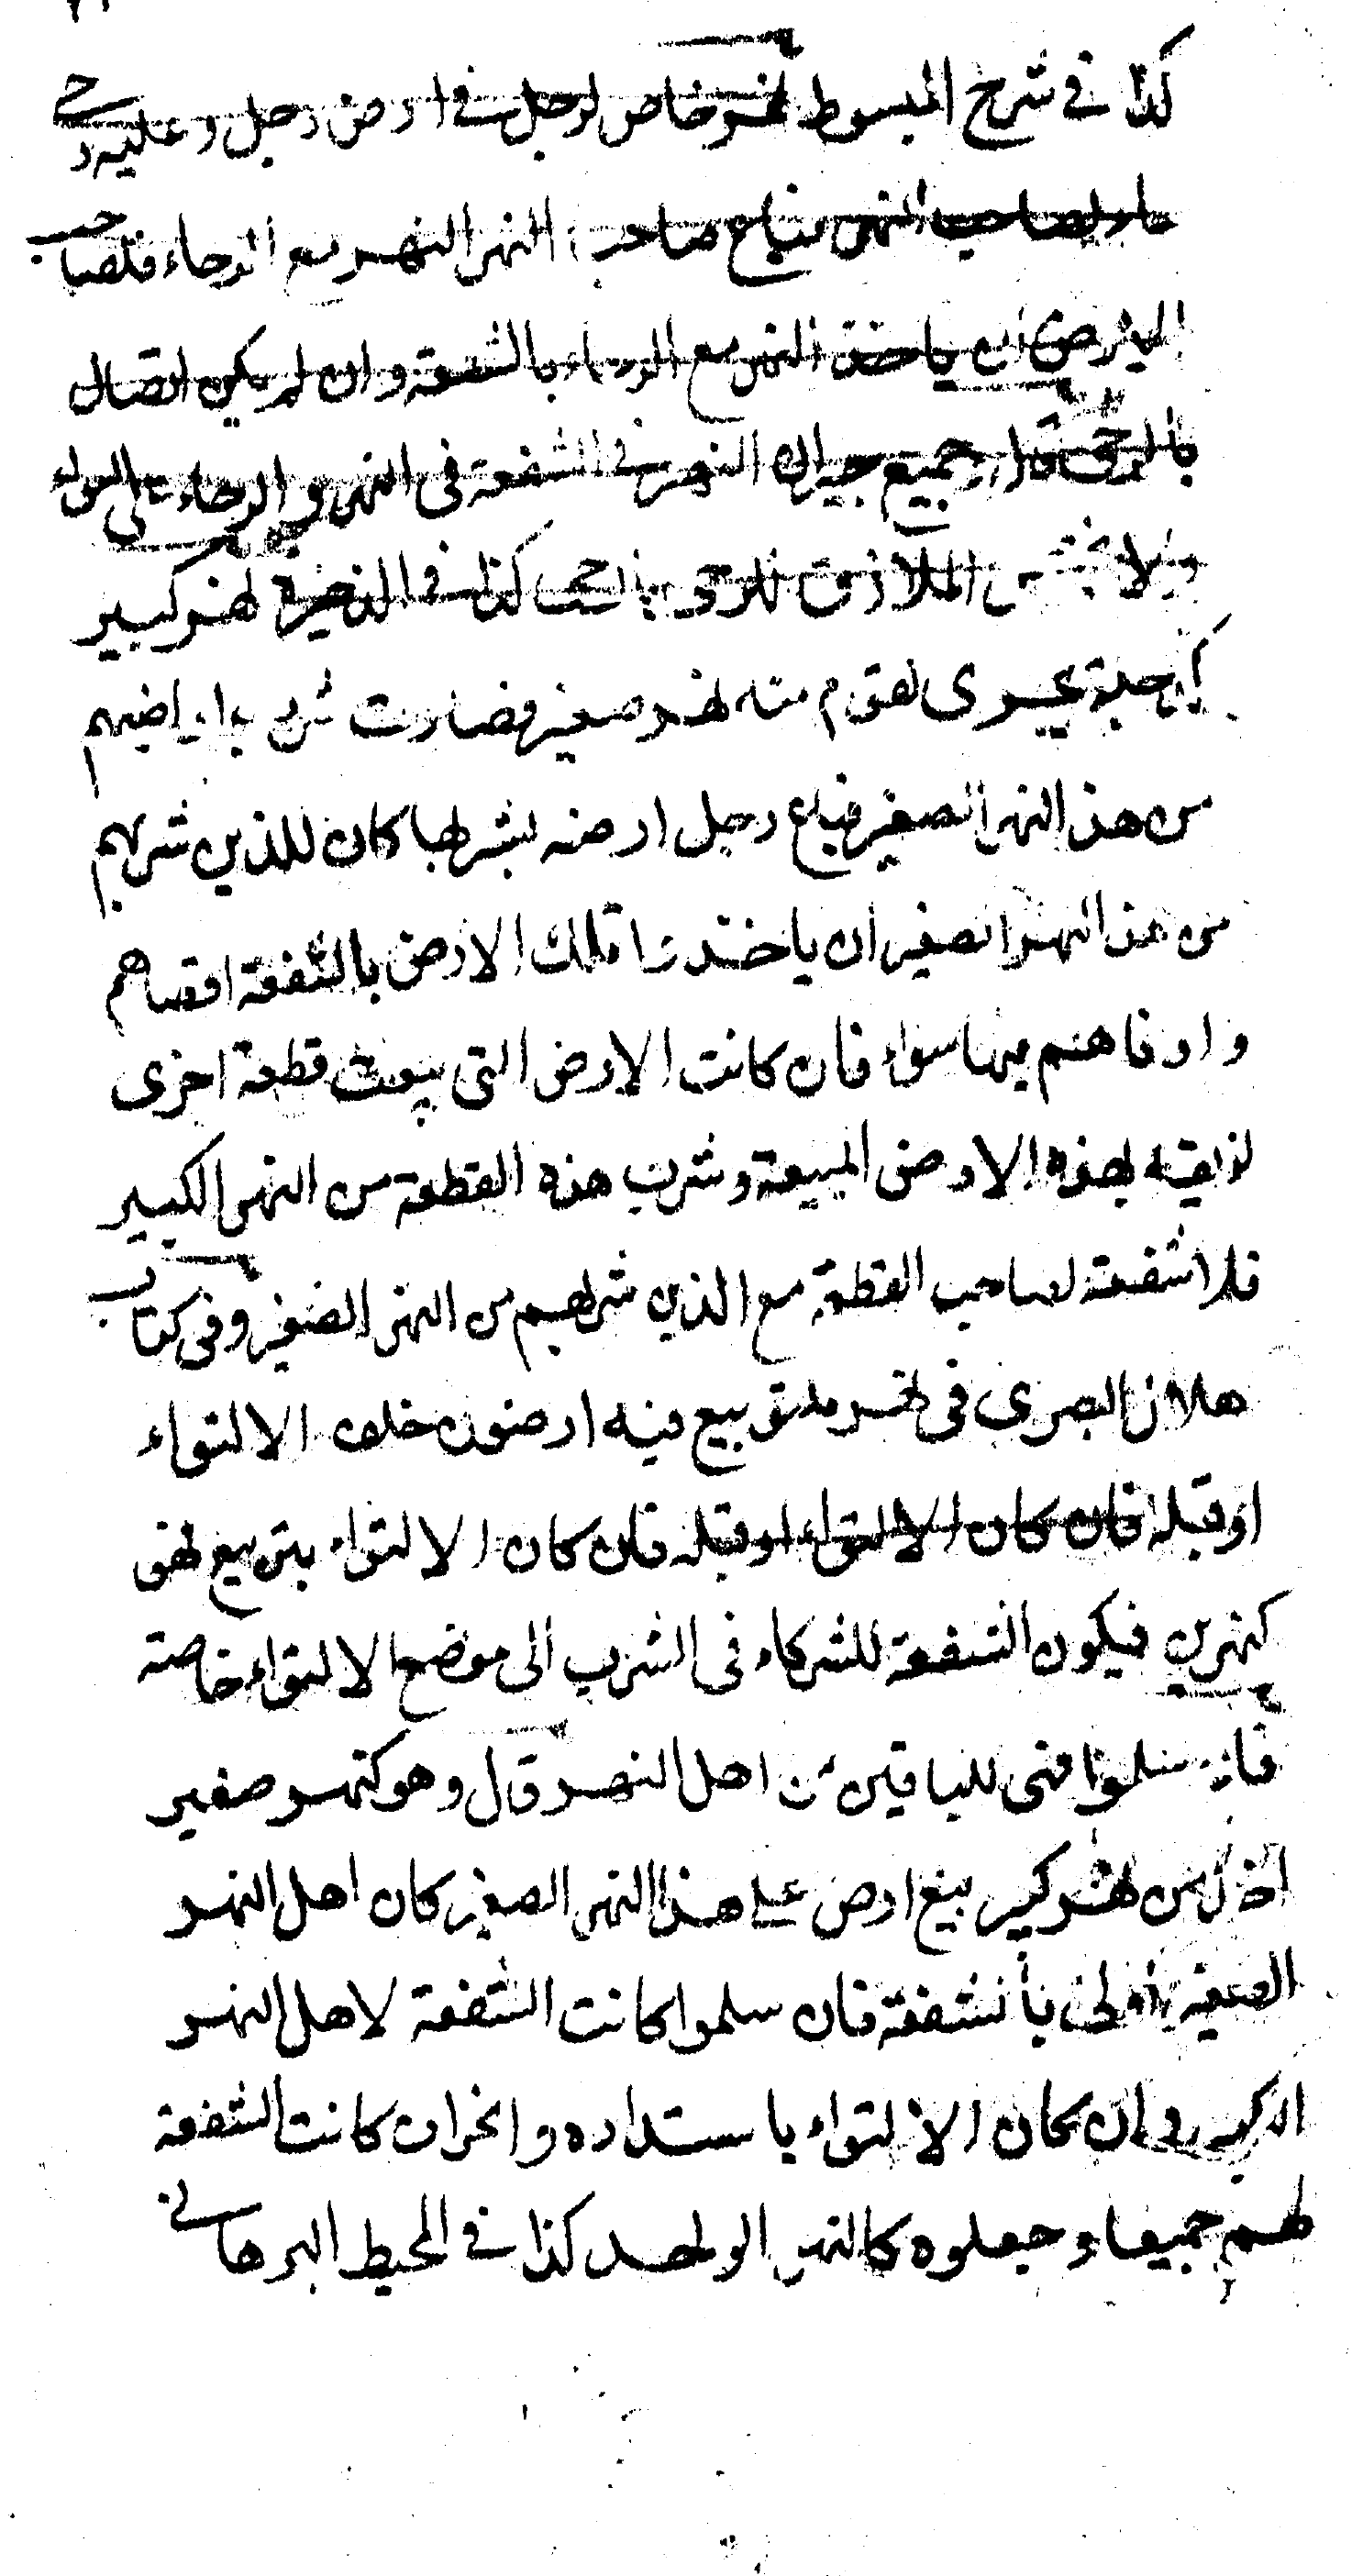 كذا في شرح المبسوط نهر خاص لرجل في ارض رجل وعليه رحى
ماء لصاحب النهر فباع صاحب النهر النهر مع الرحاء فلصاحب
الارض ان ياخذ النهر مع الرحاء بالشفعة وان لم يكن اتصال
بالرحى قال وجميع جيران النهر في الشفعة فى النهر والرحاء على السواء
ولا يختص الملازق للرحى كذا في الذخيرة نهر كبير
كدجلة يجرى لقوم منه نهر صغير فصارت شرب اراضيهم
من هذا النهر الصغير فباع رجل ارضه بشربها كان للذين شربهم
من هذا النهر الصغير ان ياخذوا تلك الارض بالشفعة اقصاهم
وادناهم فيها سواء فان كانت الارض التى بيعت قطعة اخرى
لزيقه بهذه الارض المبيعة وشرب هذه القطعة من النهر الكبير
فلا شفعة لصاحب القطعة مع الذين شربهم من النهر الصغير وفى كتاب
هلال البصرى فى نهر ملتو بيع فيه ارضون خلف الالتواء
او قبله فان كان الالتواء او قبله فان كان الالتواء بتربيع فهو
كنهرين فيكون الشفعة للشركاء فى الشرب الى موضع الالتواء خاصة
فان سلموا فهى للباقين من اهل النهر قال وهو كنهر صغير
اخذ من نهر كبير بيع ارض على هذا النهر الصغير كان اهل النهر
الصغير اولى بالشفعة فان سلموا كانت الشفعة لاهل النهر
الكبير وان كان الالتواء باستداره وانحراف كانت الشفعة
لهم جميعاء وجعلوه كالنهر الواحد كذا في المحيط البرهاني